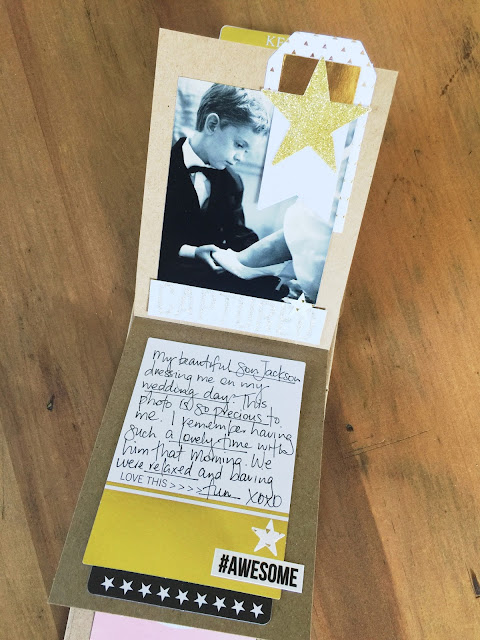 KE
My beautiful son Jackson
dressing me on my
wedding day. This
photo is so precious to
me. I remember having
such a lovely time with
him that morning. We
were relaxed and having
LOVE THIS > > > > fun XOXO
#AWESOME